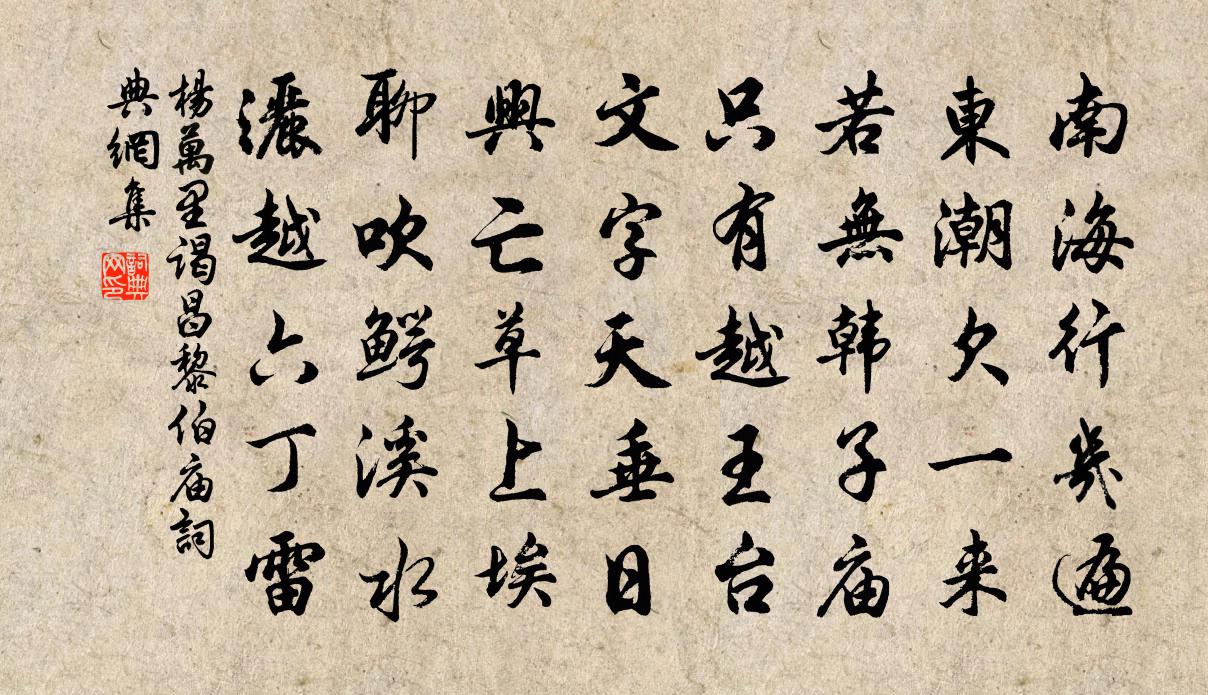 南海行幾遍
東潮欠一来
若無韩子庙
只有越王台
文字天垂日
興亡草上埃
聊吹鳄溪水
灑越六丁雷
楊萬里谒昌黎伯庙詞
典網集
詞典网印